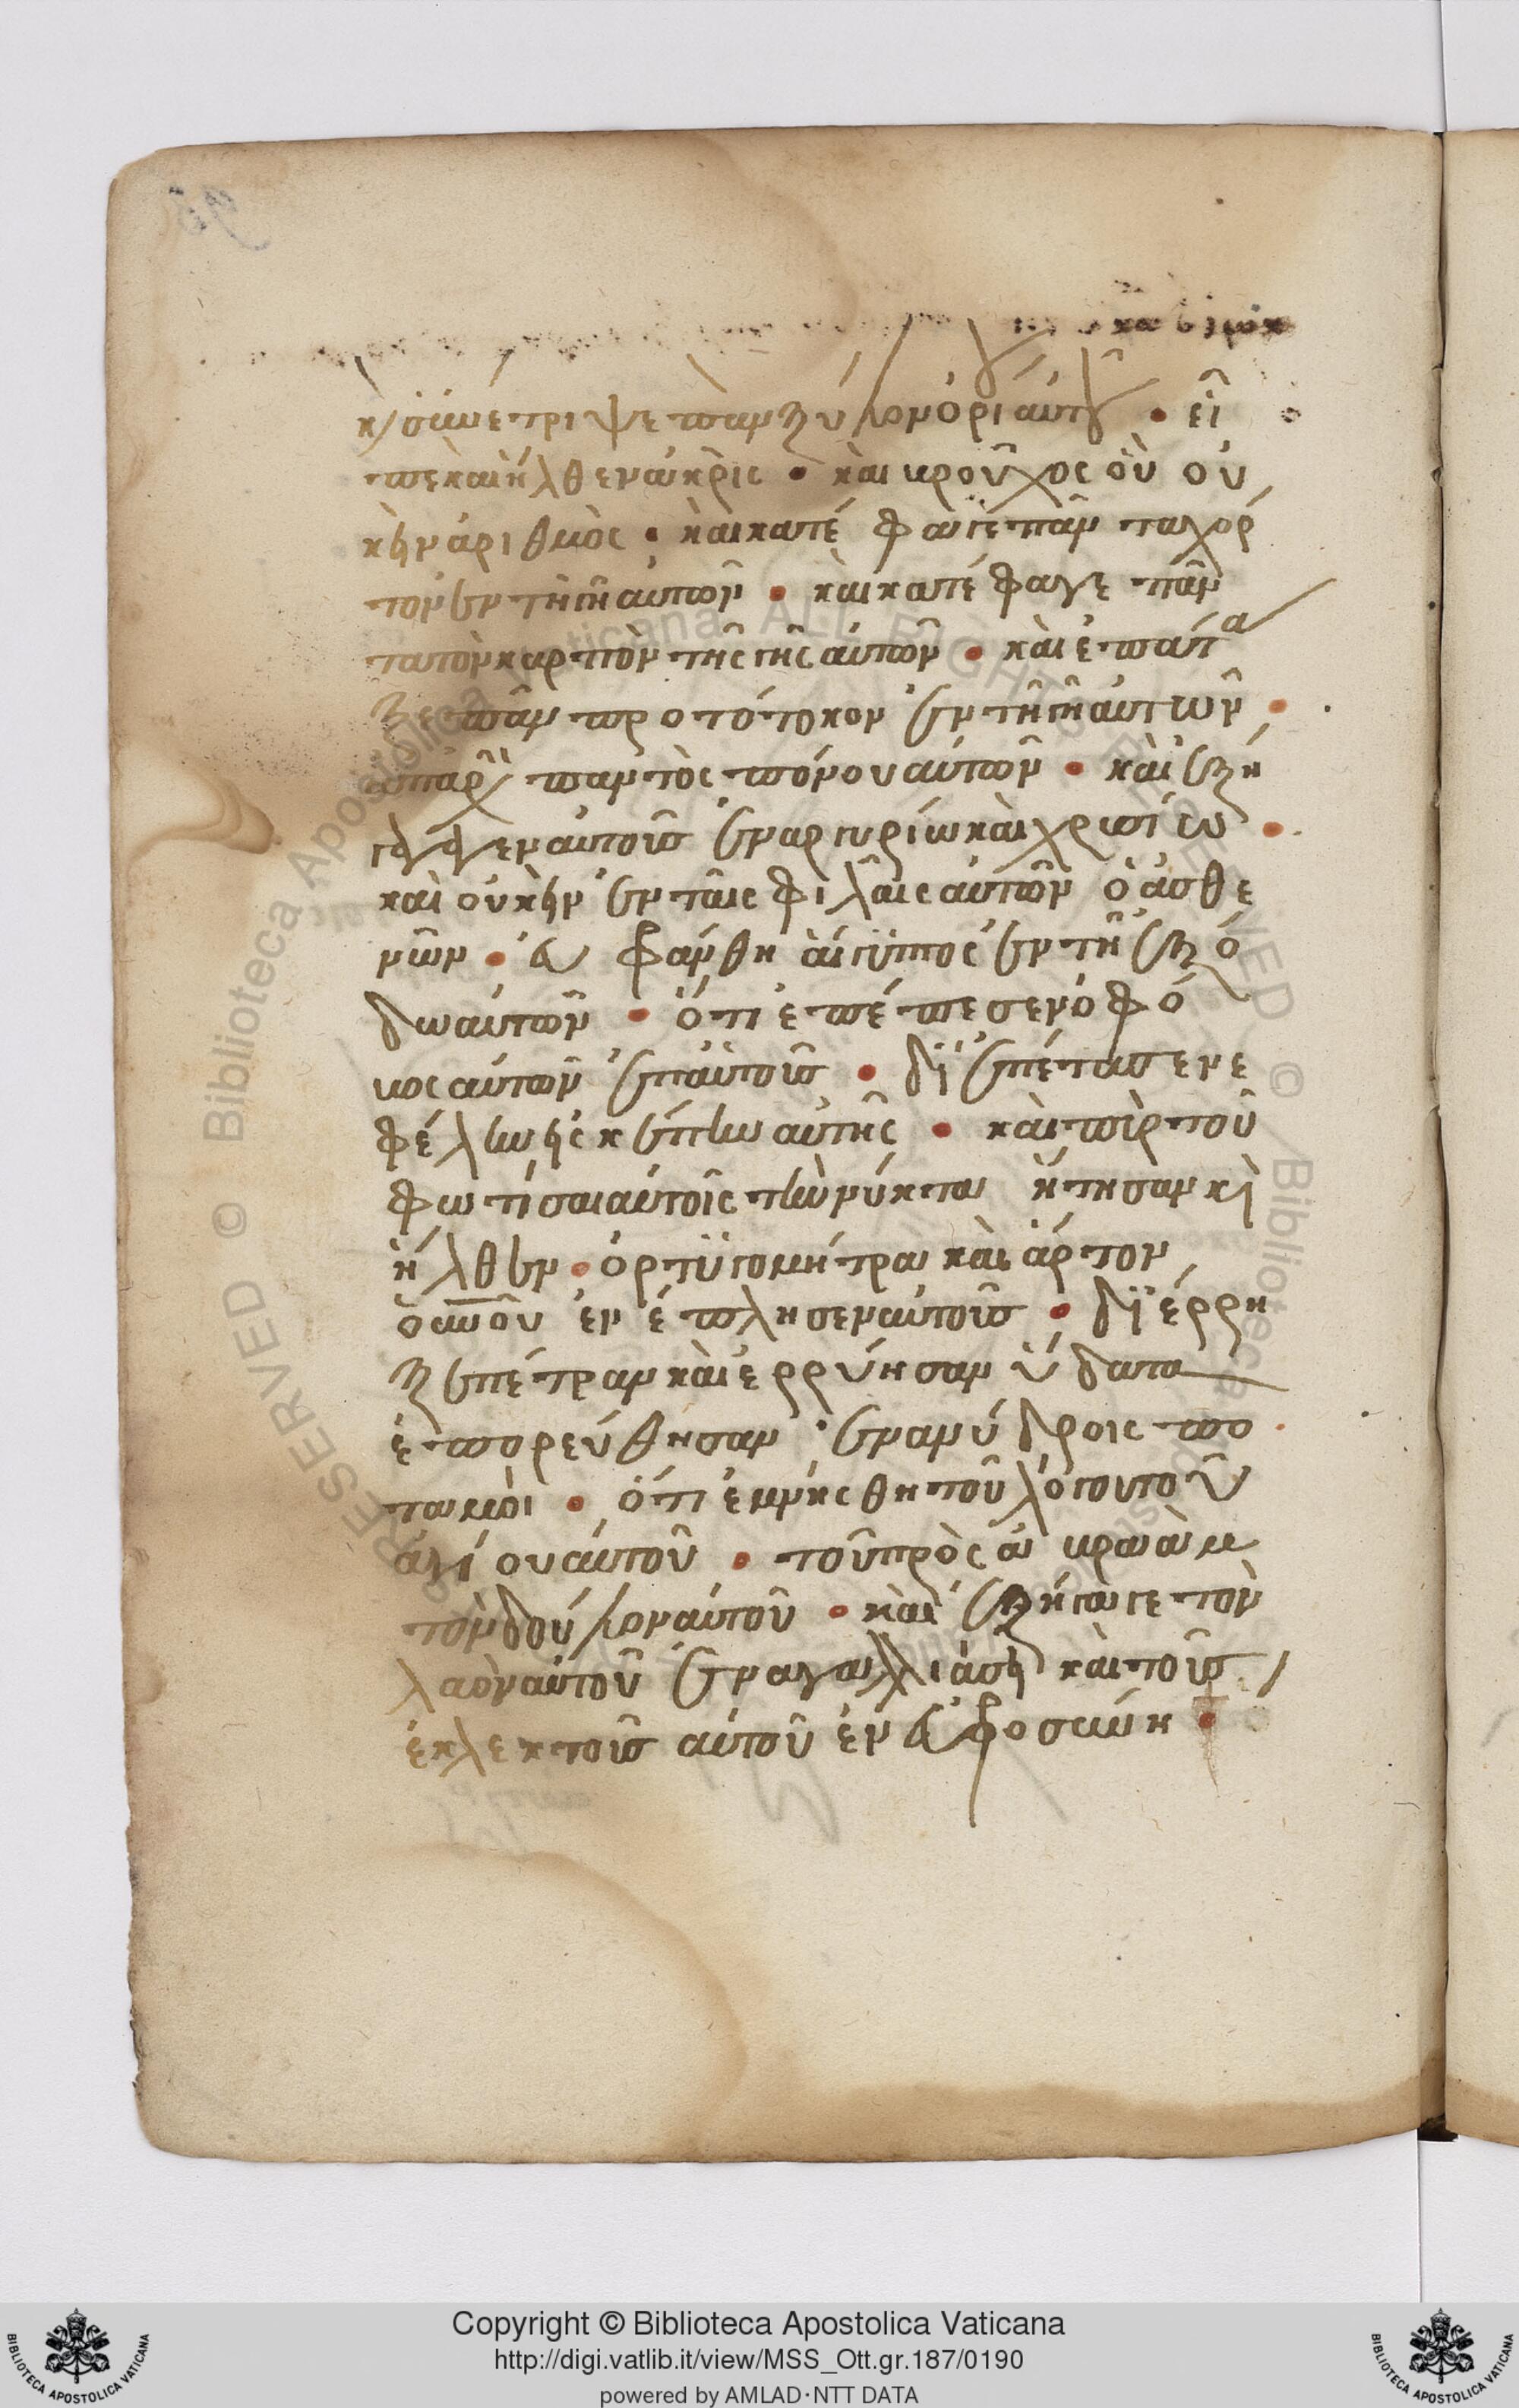 κ(αὶ) συνέτριψε πὰν ξύλον ὁρίου αὐτοῦ · εἶ
πε καὶ ἦλθεν ἀκρὶς · καὶ βροῦχος οὗ οὐ
κ ἦν ἀριθμὸς · καὶ κατέφαγε πᾶν τα χόρ
τον ἐν τῆ γῆ αὐτῶν · καὶ κατέφαγε πᾶν
τα τὸν καρπὸν τῆς γῆς αὐτῶν · καὶ ἐπάτα
ξε πᾶν προτότοκον ἐν τῆ γῆ αὐτῶν ·
ἀπαρχὴ παντὸς πόνου αὐτῶν · καὶ ἐξή
γαγεν αὐτοὺς ἐν αργυρίω καὶ χρυσίω ·
καὶ οὐκ ἦν ἐν ταῖς φιλαῖς αὐτῶν ὁ ἀσθε
νῶν · ευφράνθη αἴγυπτος ἐν τῆ ἐξό
δω αὐτῶν · ὅτι ἐπέπεσεν ὁ φό
βος αὐτῶν ἐπ αὐτοὺς · διεπέτασε νε
φέλην εἰς σκέπην αὐτῆς · καὶ πὺρ τοῦ
φωτίσαι αὐτοῖς τὴν νύκτα ἤτησαν κ(αὶ)
ἦλθεν · ὀρτυγομήτρα καὶ ἄρτον
οὐ(ρα)νοῦ ἐνέπλησεν αὐτοὺς · διέρρη
ξε πέτραν καὶ ερρύησαν ὕδατα
ἐπορεύθησαν · ἐν ανύδροις πο
ταμοὶ · ὅτι ἐμνήσθη τοῦ λόγου τοῦ
ἁγίου αὐτοῦ · τοῦ πρὸς ἀβραὰμ
τὸν δοῦλον αὐτοῦ · καὶ ἐξήγαγε τὸν
λαὸν αὐτοῦ ἐν αγαλλιάσει καὶ τοὺς
ἐκλεκτοὺς αὐτοῦ ἐν εὐφροσύνη ·
Biblioteca Apostolica Vaticana. ALL RIGHTS RESERVED ©
Copyright © Biblioteca Apostolica Vaticana
http://digi.vatlib.it/view/MSS_Ott.gr.187/0190
powered by AMLAD·NTT DATA
BIBLIOTECA APOSTOLICA VATICANA
BIBLIOTECA APOSTOLICA VATICANA